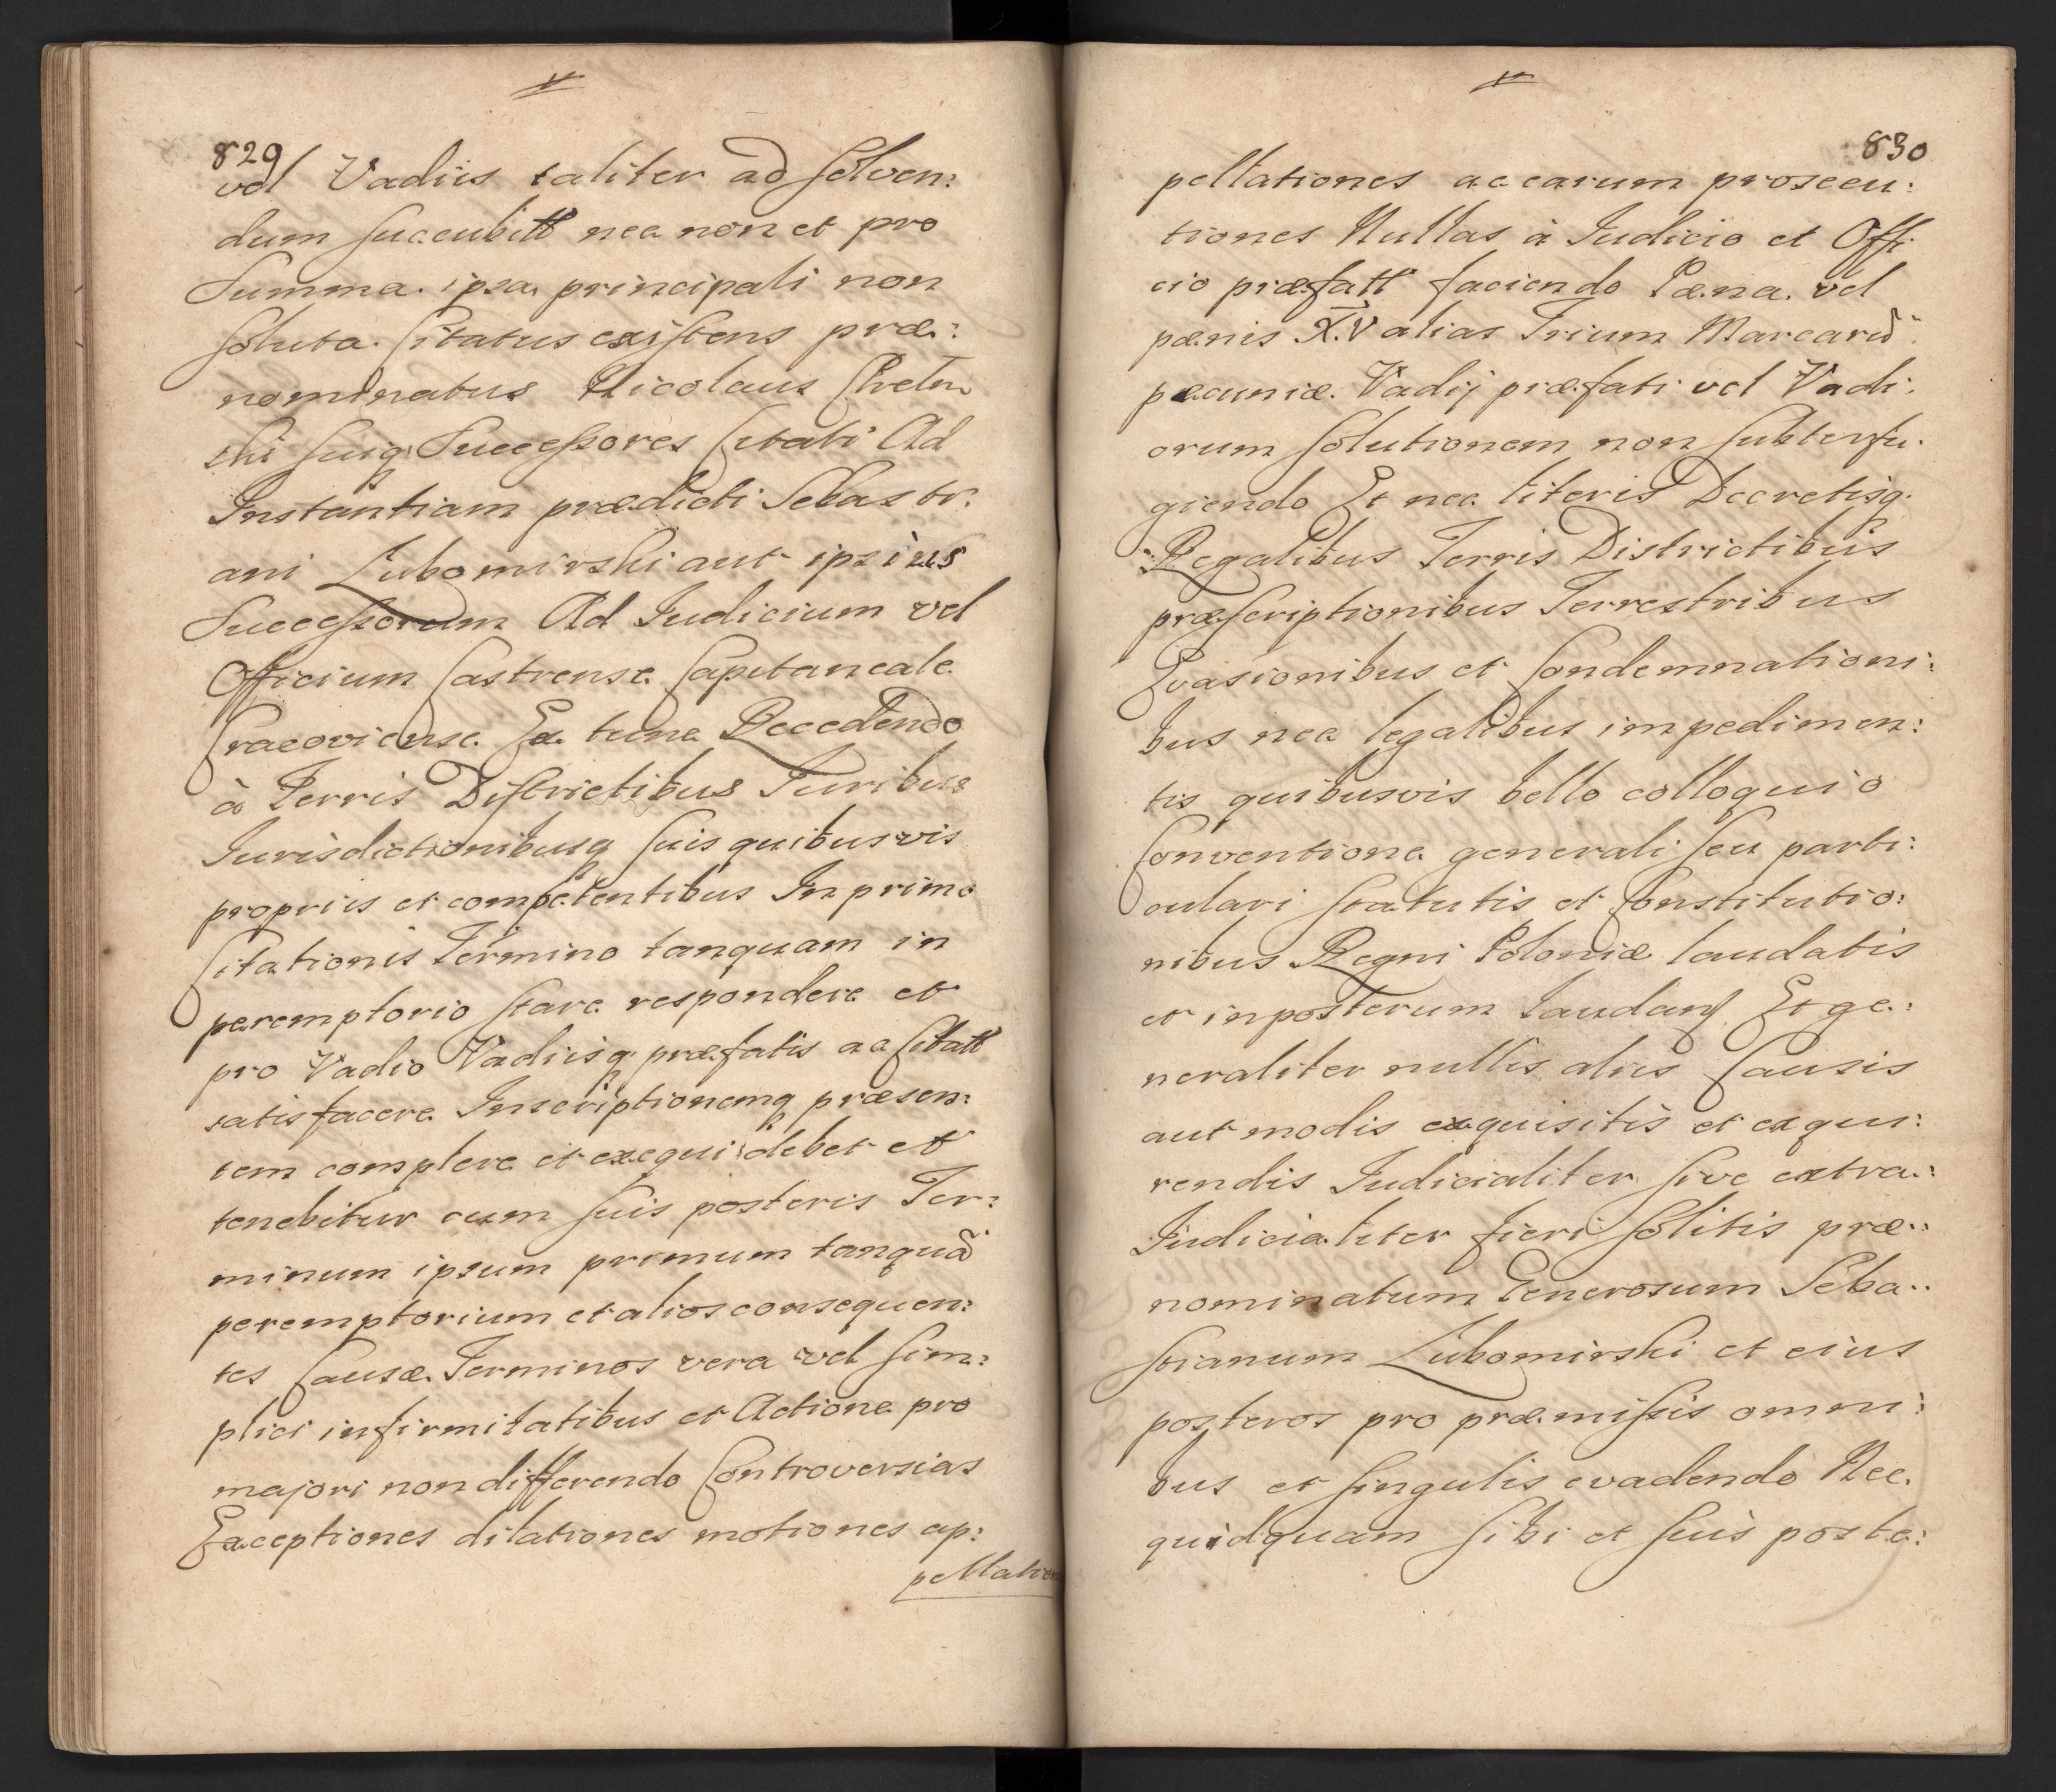 829
vel Vadiis taliter ad solven:
dum succubitt nec non et pro
Summa ipsa principali non
soluta Citatus existens præ:
nominatus Nicolaus
ski suiq Successores Citati Ad
Instantiam prædicti Sebasti:
ani Lubomirski aut ipsius
Successorum Ad Iudicium vel
Officium Castrense Capitaneale
Cracoviense Ex tunc Recedendo
à Terris Districtibus Iuribus
Iurisdictionibusq suis quibusvis
propriis et competentibus In primo
Citationis Termino tanquam in
peremptorio stare respondere et
pro Vadio Vadiisq præfatis ac Citatt
satisfacere Inscriptionemq præsen:
tem complere et exequi debet et
tenebitur cum suis posteris Ter:
minum ipsum primum tanquã
peremptorium et alios consequen:
tes Causæ Terminos vera vel sim:
plici infirmitatibus et Actione pro
majori non differendo Controversias
Exceptiones dilationes motiones ap:
pellation
830
pellationes ac earum prosecu:
tiones Nullas à Iudicio et Offi
cio præfatt faciendo Pæna vel
pænis X.V alias Trium Marcarũ
pecuniæ Vadij præfati vel Vadi:
orum solutionem non subterfu:
giendo Et nec literis Decretisq.
Regalibus Terris Districtibus
præscriptionibus Terrestribus
Evasionibus et Condemnationi:
bus nec legalibus impedimen:
tis quibusvis bello colloquio
Conventione generali seu parti:
culari statutis et Constitutio:
nibus Regni Poloniæ laudatis
et inposterum laudans Et ge:
neraliter nullis aliis Causis
aut modis exquisitis et exqui:
rendis Iudicialiter sive extra:
Iudicialiter fieri solitis præ:
nominatum Generosum Seba:
stianum Lubomirski et eius
posteros pro præmissis omni:
bus et singulis evadendo Nec
quidquam sibi et suis poste: